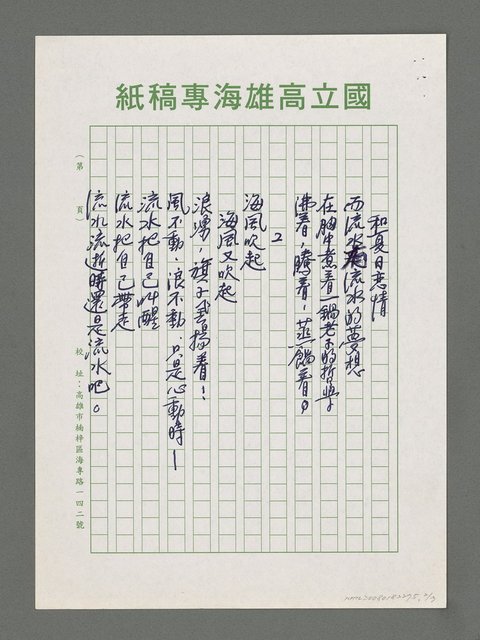 紙稿專海雄高立國
和夏日戀情
而流水有流水的夢想
在胸中煮着一鍋老子的哲學
沸着，騰着，蒸餾着。
2
海風吹起
海風又吹起
浪湧，旗子長揚着！
風不動，浪不動，只是心動時—
流水把自己叫醒
流水把自己帶走
流水流逝時還是流水吧。
（第　頁）
校址：高雄市楠梓區海專路一四二號